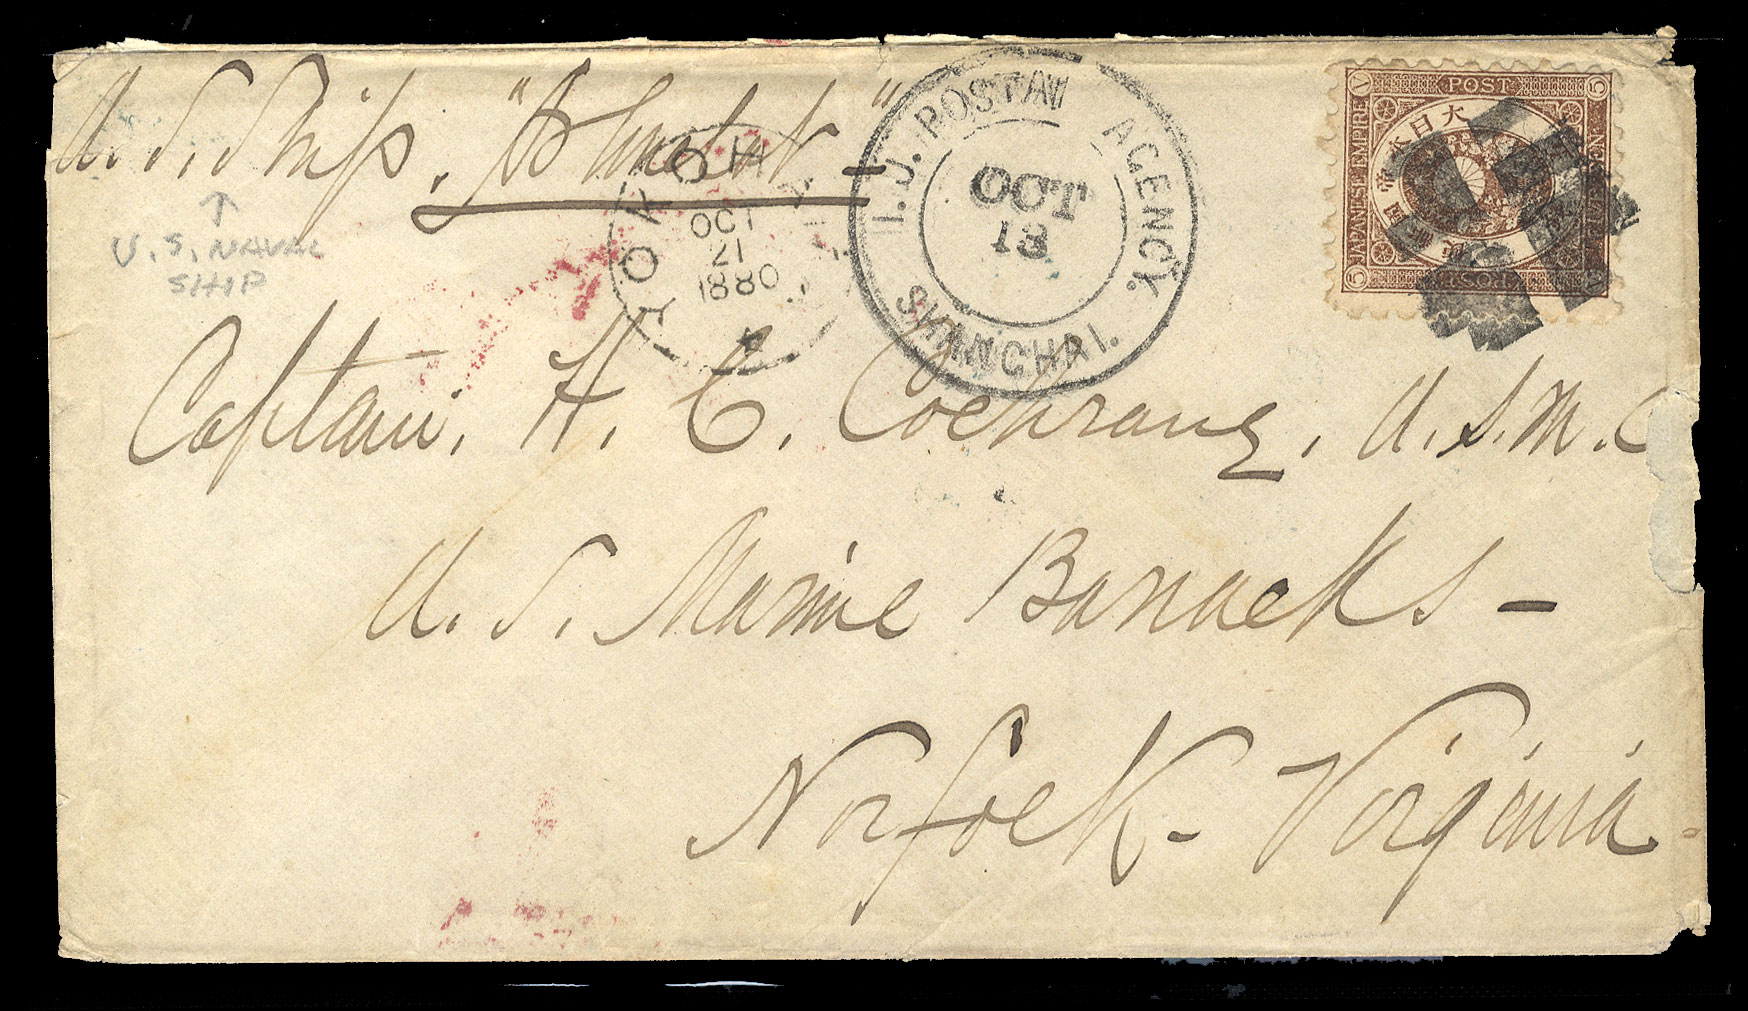 U. S. Ship, "Ashuelot" -
U. S. NAVAL
SHIP
YOKOHAMA
OCT
21
1880
I. J. POSTAL AGENCY.
OCT
13
SHANGHAI.
POST
JAPANESE EMPIRE
5
大日本帝國
POST
Captain, H. C. Cochrane, U.S.M.C
U. S. Marine Barracks -
Norfolk - Virginia -